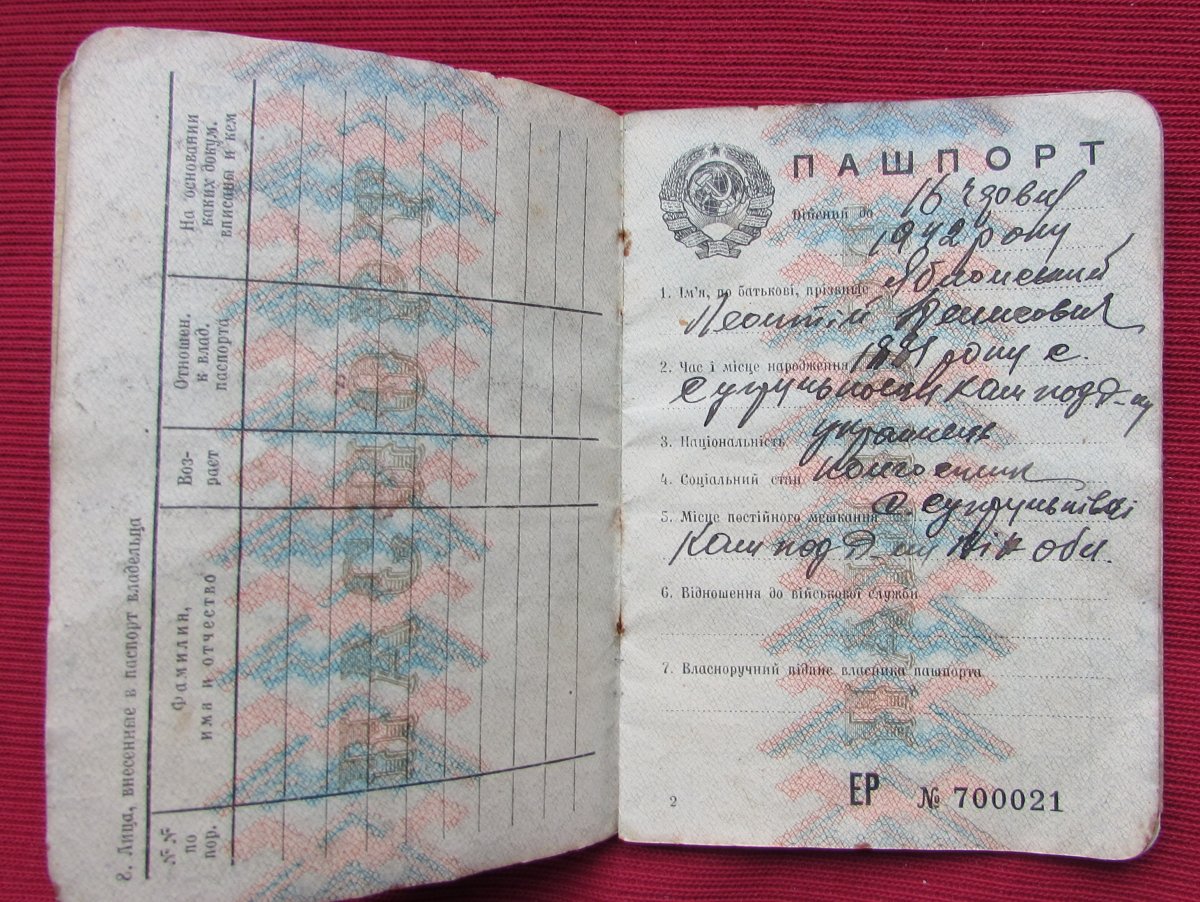 8. Лица, внесенные в паспорт владельца
№ № по пор.
Фамилия, имя и отчество
Воз- раст
Отношен. к влад. паспорта
На основании каких докум. вписаны и кем
ПАСПОРТ
ПАШПОРТ
Дійсний до 16
1942 року
1. Ім'я, по батькові, прізвище
Леонтій Денисович
2. Час і місце народження року с.
3. Національність українець
4. Соціальний стан колгоспник
5. Місце постійного мешкання с.
обл.
6. Відношення до військової служби
7. Власноручний підпис власника пашпорта
2
ЕР № 700021